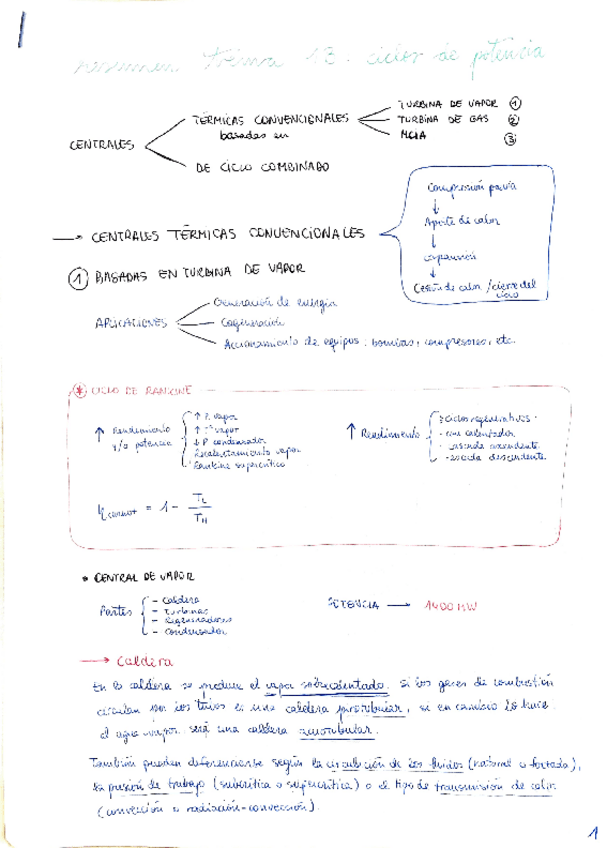 resumen tema 13. ciclos de potencia
CENTRALES
TÉRMICAS CONVENCIONALES
basadas en
TURBINA DE VAPOR ①
TURBINA DE GAS ②
MCIA ③
DE CICLO COMBINADO
→ CENTRALES TÉRMICAS CONVENCIONALES
Compresión previa
↓
Aporte de calor
↓
expansión
↓
Cesión de calor / cierre del ciclo
① BASADAS EN TURBINA DE VAPOR
APLICACIONES
Generación de energía
Cogeneración
Accionamiento de equipos. bombas, compresores, etc.
* CICLO DE RANKINE
↑ Rendimiento
y/o potencia
↑ P. vapor
↑ Tª vapor
↓ P condensador
Recalentamiento vapor
Rankine supercrítico
↑ Rendimiento
ciclos regenerativos
- con calentador
- cascada ascendente
- cascada descendente
η carnot = 1 - TL / TH
• CENTRAL DE VAPOR
Partes
- caldera
- turbinas
- Regeneradores
- condensador
POTENCIA → 1400 MW
→ Caldera
En la caldera se produce el vapor sobrecalentado. Si los gases de combustión
circulan por los tubos es una caldera pirotubular, si en cambio lo hace
el agua-vapor será una caldera acuotubular.
También pueden diferenciarse según la circulación de los fluidos (natural o forzada),
la presión de trabajo (subcrítica o supercrítica) o el tipo de transmisión de calor
(convección o radiación-convección).
1